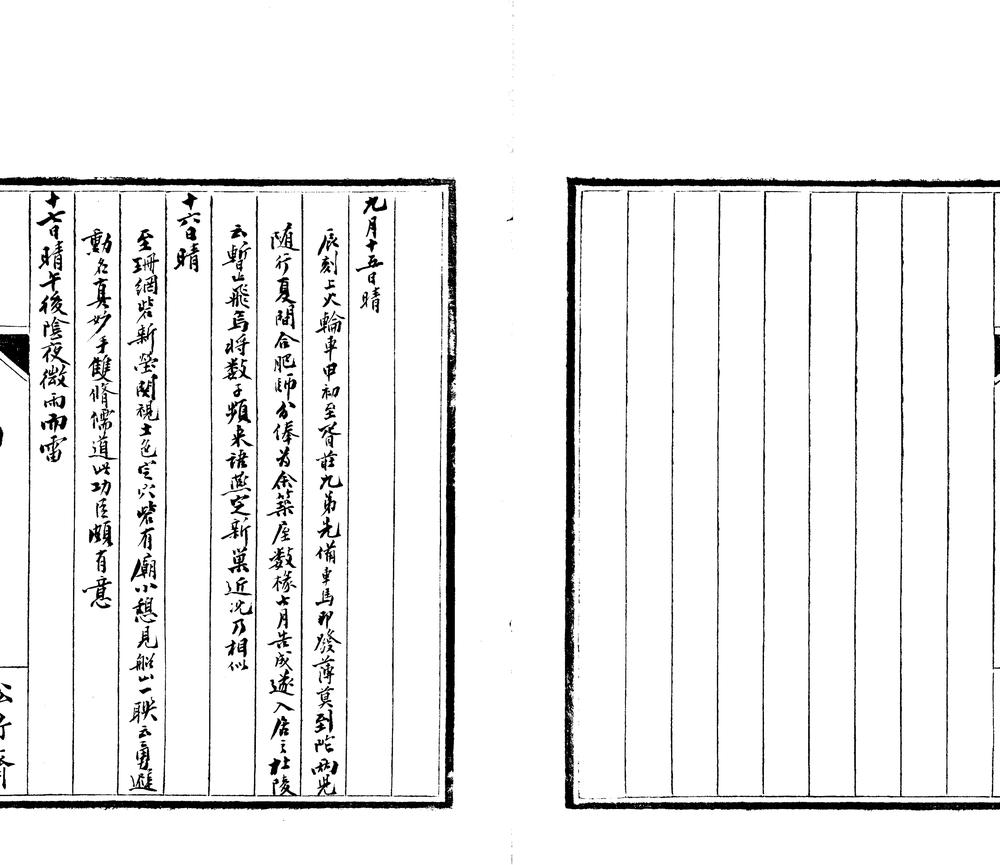 九月十五日晴
辰刻上火輪車申初至胥莊九弟先備車馬即發薄莫到陀兩兒
隨行夏閒合肥師分俸為余築屋數椽七月告成遂入居之杜陵
云暫止飛烏將數子頻來語燕定新巢近況乃相似
十六日晴
至珊網岩新塋閱視土色定穴岩有廟小憩見船山一聯云勇避
勳名真妙手雙脩儒道此功臣頗有意
十七日晴午後陰夜微雨而雷